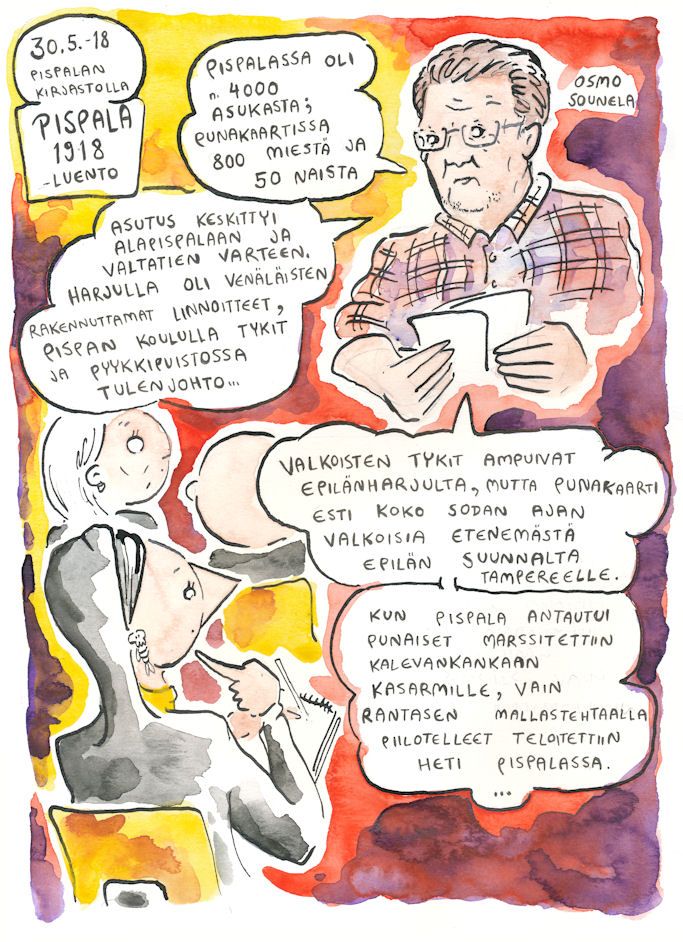 30.5.-18
PISPALAN
KIRJASTOLLA
PISPALA
1918
-LUENTO
PISPALASSA OLI
n. 4000
ASUKASTA;
PUNAKAARTISSA
800 MIESTÄ JA
50 NAISTA
OSMO
SOUNELA
ASUTUS KESKITTYI
ALAPISPALAAN JA
VALTATIEN VARTEEN.
HARJULLA OLI VENÄLÄISTEN
RAKENNUTTAMAT LINNOITTEET,
PISPAN KOULULLA TYKIT
JA PYYKKIPUISTOSSA
TULENJOHTO...
VALKOISTEN TYKIT AMPUIVAT
EPILÄNHARJULTA, MUTTA PUNAKAARTI
ESTI KOKO SODAN AJAN
VALKOISIA ETENEMÄSTÄ
EPILÄN SUUNNALTA
TAMPEREELLE.
KUN PISPALA ANTAUTUI
PUNAISET MARSSITETTIIN
KALEVANKANKAAN
KASARMILLE, VAIN
RANTASEN MALLASTEHTAALLA
PIILOTELLEET TELOITETTIIN
HETI PISPALASSA.
...